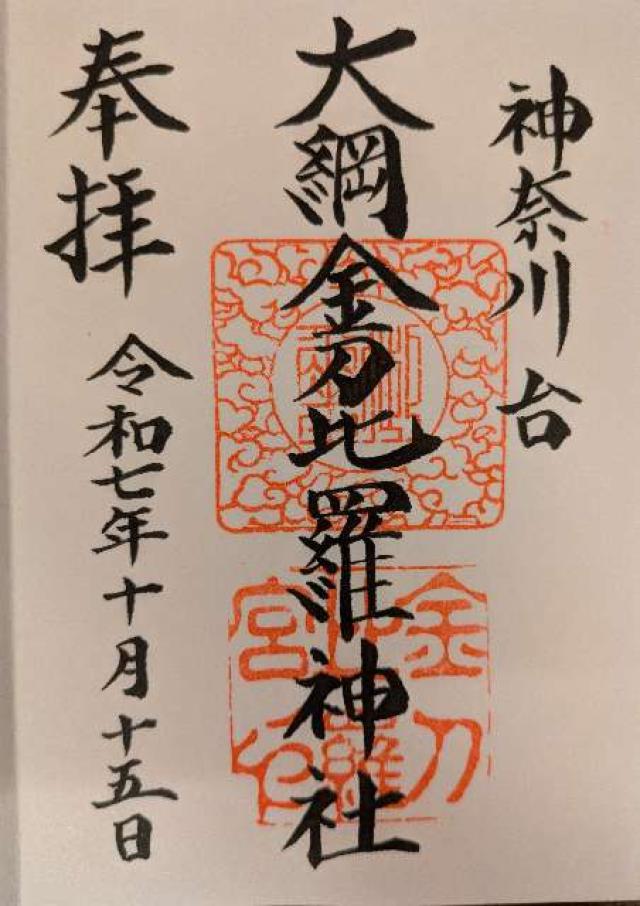 神奈川台
大綱金刀比羅神社
奉拝
令和七年十月十五日
金刀
比羅
宮